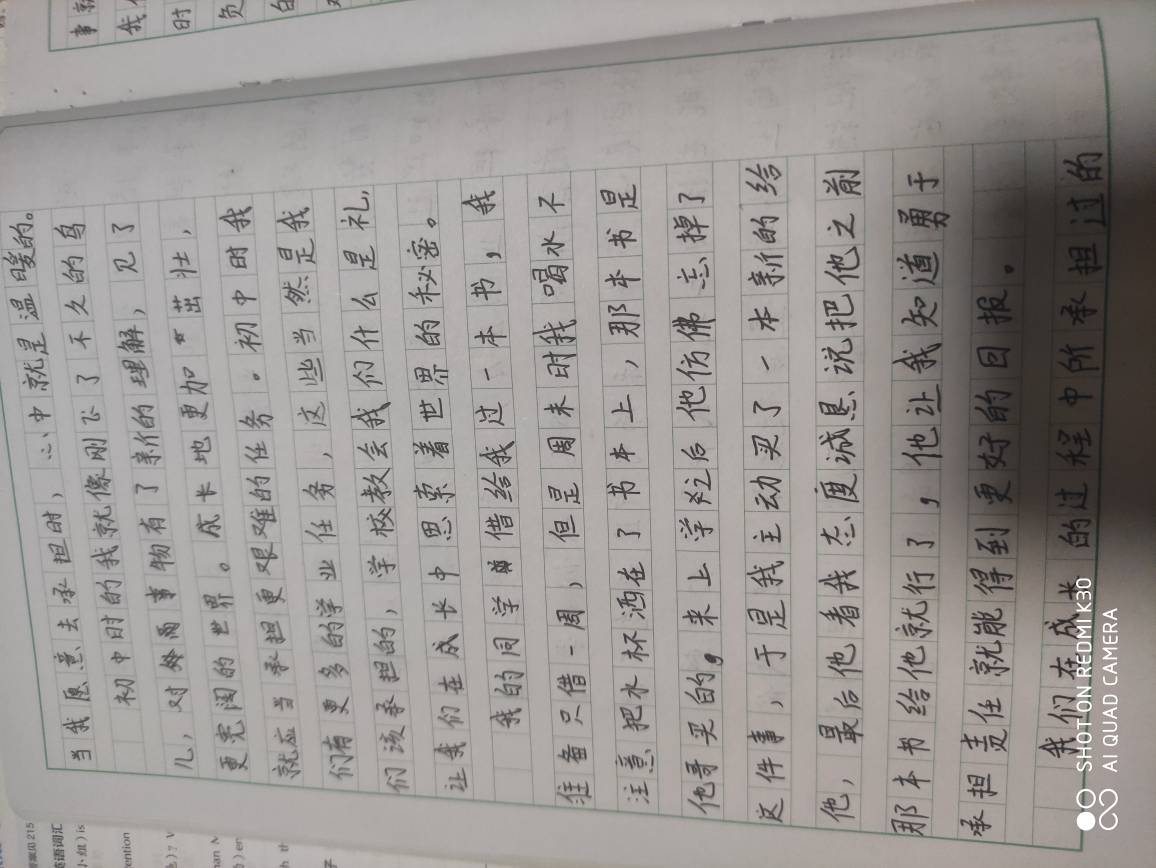 当我愿意去承担时，心中就是温暖的。
初中时的我就像刚飞了不久的鸟
儿，对事物有了新的理解，见了
更宽阔的世界。成长地更加茁壮，
就应当承担更艰难的任务。初中时我
们有更多的学业任务，这些当然是我
们该承担的，学校教会我们什么是礼，
让我们在成长中思索着世界的秘密。
我的同学借给我过一本书，我
准备只借一周，但是周末时我喝水不
注意把水杯洒在了书本上，那本书是
他哥买的。来上学之后他仿佛忘掉了
这件事，于是我主动买了一本新的给
他，最后他看我态度诚恳说把他之前
那本书给他就行了，他让我知道勇于
承担责任就能得到更好的回报。
我们在成长的过程中所承担过的
SHOT ON REDMI K30
AI QUAD CAMERA